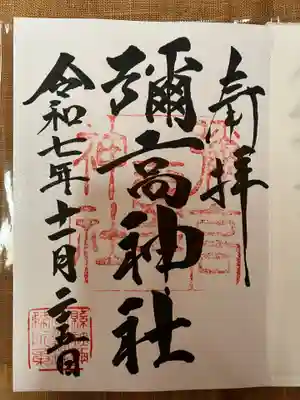 奉拝
彌高神社
令和七年十一月二五日